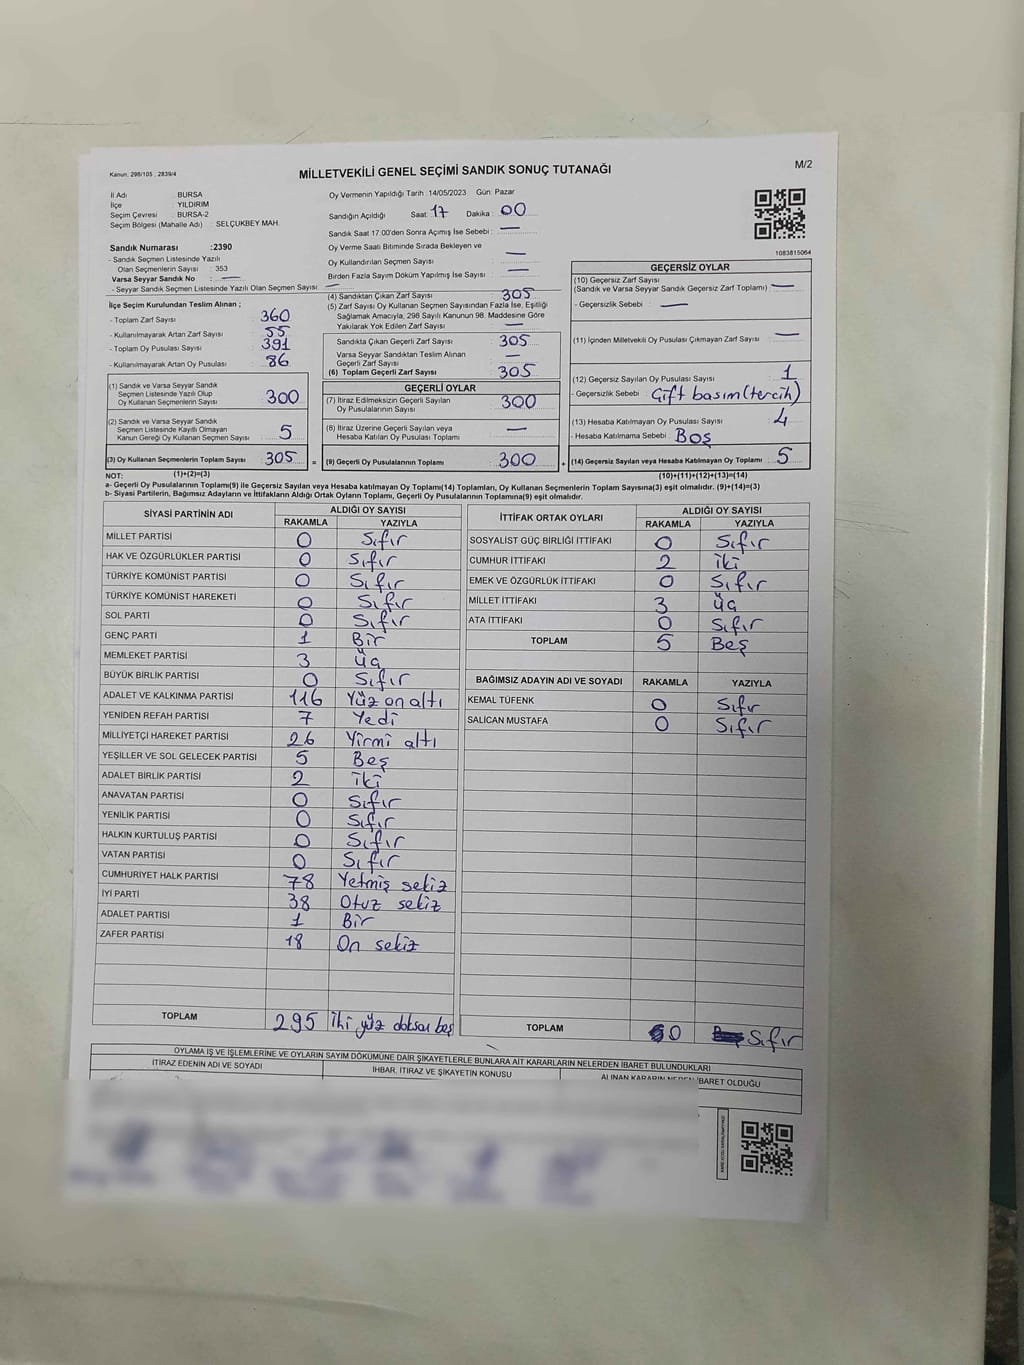 Kanun, 298/105 , 2839/4
MİLLETVEKİLİ GENEL SEÇİMİ SANDIK SONUÇ TUTANAĞI
M/2
İl Adı : BURSA
İlçe : YILDIRIM
Seçim Çevresi : BURSA-2
Seçim Bölgesi (Mahalle Adı) : SELÇUKBEY MAH.
Sandık Numarası :2390
- Sandık Seçmen Listesinde Yazılı
Olan Seçmenlerin Sayısı : 353
Varsa Seyyar Sandık No : —
- Seyyar Sandık Seçmen Listesinde Yazılı Olan Seçmen Sayısı : —
İlçe Seçim Kurulundan Teslim Alınan ;
- Toplam Zarf Sayısı : 360
- Kullanılmayarak Artan Zarf Sayısı : 55
- Toplam Oy Pusulası Sayısı : 391
- Kullanılmayarak Artan Oy Pusulası : 86
(1) Sandık ve Varsa Seyyar Sandık
Seçmen Listesinde Yazılı Olup
Oy Kullanan Seçmenlerin Sayısı : 300
(2) Sandık ve Varsa Seyyar Sandık
Seçmen Listesinde Kayıtlı Olmayan
Kanun Gereği Oy Kullanan Seçmen Sayısı : 5
(3) Oy Kullanan Seçmenlerin Toplam Sayısı : 305
Oy Vermenin Yapıldığı Tarih :14/05/2023 Gün: Pazar
Sandığın Açıldığı Saat : 17 Dakika : 00
Sandık Saat 17.00'den Sonra Açımış İse Sebebi : —
Oy Verme Saati Bitiminde Sırada Bekleyen ve
Oy Kullandırılan Seçmen Sayısı : —
Birden Fazla Sayım Döküm Yapılmış İse Sayısı : —
(4) Sandıktan Çıkan Zarf Sayısı : 305
(5) Zarf Sayısı Oy Kullanan Seçmen Sayısından Fazla İse, Eşitliği
Sağlamak Amacıyla, 298 Sayılı Kanunun 98. Maddesine Göre
Yakılarak Yok Edilen Zarf Sayısı : —
Sandıkta Çıkan Geçerli Zarf Sayısı : 305
Varsa Seyyar Sandıktan Teslim Alınan
Geçerli Zarf Sayısı : —
(6) Toplam Geçerli Zarf Sayısı : 305
GEÇERLİ OYLAR
(7) İtiraz Edilmeksizin Geçerli Sayılan
Oy Pusulalarının Sayısı : 300
(8) İtiraz Üzerine Geçerli Sayılan veya
Hesaba Katılan Oy Pusulası Toplamı : —
= (9) Geçerli Oy Pusulalarının Toplamı : 300 +
1083815064
GEÇERSİZ OYLAR
(10) Geçersiz Zarf Sayısı
(Sandık ve Varsa Seyyar Sandık Geçersiz Zarf Toplamı) : —
- Geçersizlik Sebebi : —
(11) İçinden Milletvekili Oy Pusulası Çıkmayan Zarf Sayısı : —
(12) Geçersiz Sayılan Oy Pusulası Sayısı : 1
- Geçersizlik Sebebi : Çift basım (tercih)
(13) Hesaba Katılmayan Oy Pusulası Sayısı : 4
- Hesaba Katılmama Sebebi : Boş
(14) Geçersiz Sayılan veya Hesaba Katılmayan Oy Toplamı : 5
NOT: (1)+(2)=(3) (10)+(11)+(12)+(13)=(14)
a- Geçerli Oy Pusulaları Toplamı(9) ile Geçersiz Sayılan veya Hesaba katılmayan Oy Toplamı(14) Toplamları, Oy Kullanan Seçmenlerin Toplam Sayısına(3) eşit olmalıdır. (9)+(14)=(3)
b- Siyasi Partilerin, Bağımsız Adayların ve İttifakların Aldığı Ortak Oyların Toplamı, Geçerli Oy Pusulalarının Toplamına(9) eşit olmalıdır.
SİYASİ PARTİNİN ADI ALDIĞI OY SAYISI
RAKAMLA YAZIYLA
MİLLET PARTİSİ 0 Sıfır
HAK VE ÖZGÜRLÜKLER PARTİSİ 0 Sıfır
TÜRKİYE KOMÜNİST PARTİSİ 0 Sıfır
TÜRKİYE KOMÜNİST HAREKETİ 0 Sıfır
SOL PARTİ 0 Sıfır
GENÇ PARTİ 1 Bir
MEMLEKET PARTİSİ 3 üç
BÜYÜK BİRLİK PARTİSİ 0 Sıfır
ADALET VE KALKINMA PARTİSİ 116 Yüz on altı
YENİDEN REFAH PARTİSİ 7 Yedi
MİLLİYETÇİ HAREKET PARTİSİ 26 Yirmi altı
YEŞİLLER VE SOL GELECEK PARTİSİ 5 Beş
ADALET BİRLİK PARTİSİ 2 iki
ANAVATAN PARTİSİ 0 Sıfır
YENİLİK PARTİSİ 0 Sıfır
HALKIN KURTULUŞ PARTİSİ 0 Sıfır
VATAN PARTİSİ 0 Sıfır
CUMHURİYET HALK PARTİSİ 78 Yetmiş sekiz
İYİ PARTİ 38 Otuz sekiz
ADALET PARTİSİ 1 Bir
ZAFER PARTİSİ 18 On sekiz
TOPLAM 295 İki yüz doksan beş
İTTİFAK ORTAK OYLARI ALDIĞI OY SAYISI
RAKAMLA YAZIYLA
SOSYALİST GÜÇ BİRLİĞİ İTTİFAKI 0 Sıfır
CUMHUR İTTİFAKI 2 iki
EMEK VE ÖZGÜRLÜK İTTİFAKI 0 Sıfır
MİLLET İTTİFAKI 3 üç
ATA İTTİFAKI 0 Sıfır
TOPLAM 5 Beş
BAĞIMSIZ ADAYIN ADI VE SOYADI RAKAMLA YAZIYLA
KEMAL TÜFENK 0 Sıfır
SALİCAN MUSTAFA 0 Sıfır
TOPLAM 0 Sıfır
OYLAMA İŞ VE İŞLEMLERİNE VE OYLARIN SAYIM DÖKÜMÜNE DAİR ŞİKAYETLERLE BUNLARA AİT KARARLARIN NELERDEN İBARET BULUNDUKLARI
İTİRAZ EDENİN ADI VE SOYADI İHBAR, İTİRAZ VE ŞİKAYETİN KONUSU ALINAN KARARIN NEDEN İBARET OLDUĞU